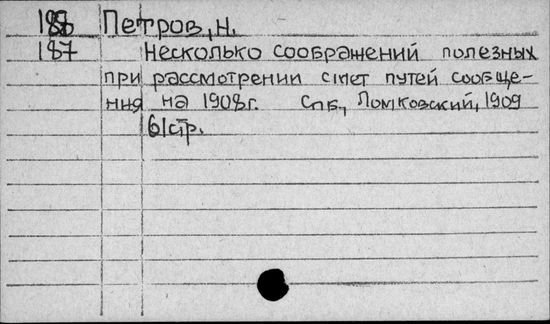 188 Петров, Н.
187 Несколько соображений полезных
при рассмотрении смет путей сообще-
ния на 1908г. Спб., Ломковский, 1909
61стр.